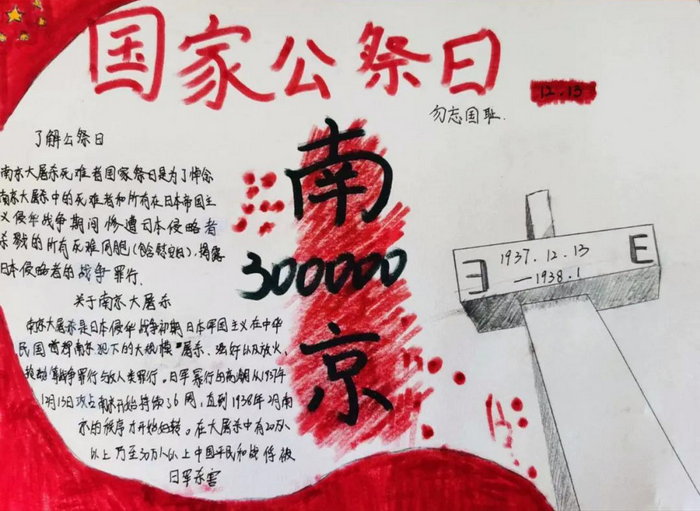 国家公祭日
12.13
勿忘国耻.
了解公祭日
南京大屠杀死难者国家公祭日是为了悼念
南京大屠杀中的死难者和所有在日本帝国主
义侵华战争期间惨遭日本侵略者
杀戮的所有死难同胞(包含慰安妇),揭露
日本侵略者的战争罪行.
关于南京大屠杀
南京大屠杀是日本侵华战争初期日本军国主义在中华
民国首都南京犯下的大规模屠杀、强奸以及放火、
战争罪行与反人类罪行。日军暴行的高潮从1937年
12月13日攻占南京开始持续了6周,直到1938年2月南
京的秩序才开始好转。在大屠杀中有20万
以上乃至30万人以上中国平民和战俘被
日军杀害
南
300000
京
1937.12.13
—1938.1